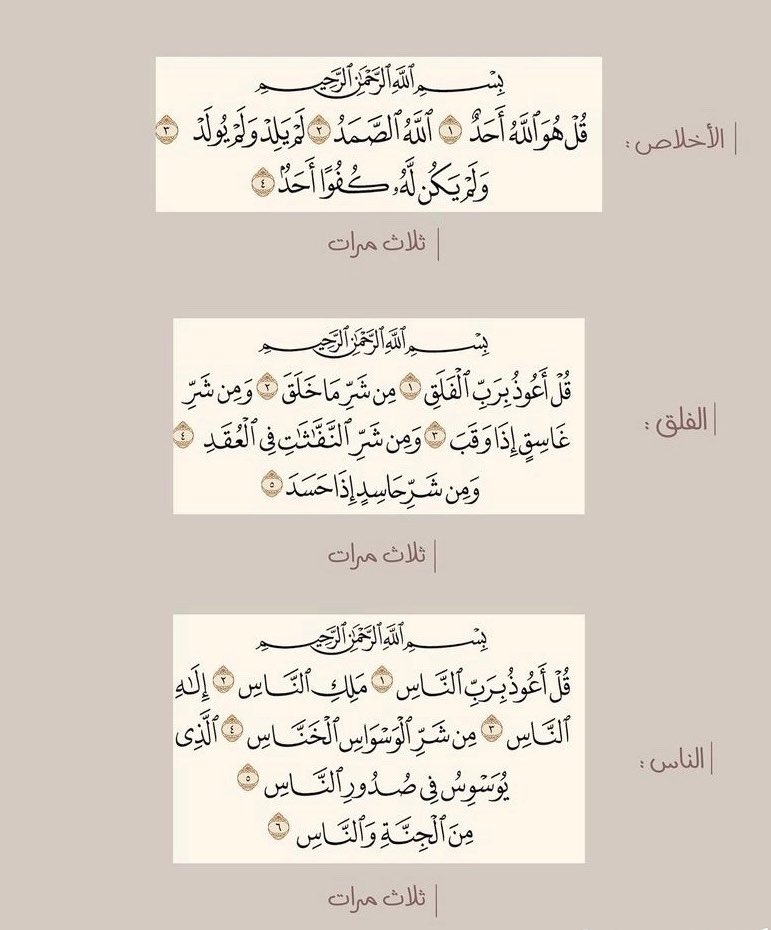 الأخلاص :
بِسْمِ ٱللَّهِ ٱلرَّحْمَٰنِ ٱلرَّحِيمِ
قُلْ هُوَ ٱللَّهُ أَحَدٌ ١ ٱللَّهُ ٱلصَّمَدُ ٢ لَمْ يَلِدْ وَلَمْ يُولَدْ ٣
وَلَمْ يَكُن لَّهُۥ كُفُوًا أَحَدٌۢ ٤
ثلاث مرات
الفلق :
بِسْمِ ٱللَّهِ ٱلرَّحْمَٰنِ ٱلرَّحِيمِ
قُلْ أَعُوذُ بِرَبِّ ٱلْفَلَقِ ١ مِن شَرِّ مَا خَلَقَ ٢ وَمِن شَرِّ
غَاسِقٍ إِذَا وَقَبَ ٣ وَمِن شَرِّ ٱلنَّفَّٰثَٰتِ فِى ٱلْعُقَدِ ٤
وَمِن شَرِّ حَاسِدٍ إِذَا حَسَدَ ٥
ثلاث مرات
الناس :
بِسْمِ ٱللَّهِ ٱلرَّحْمَٰنِ ٱلرَّحِيمِ
قُلْ أَعُوذُ بِرَبِّ ٱلنَّاسِ ١ مَلِكِ ٱلنَّاسِ ٢ إِلَٰهِ
ٱلنَّاسِ ٣ مِن شَرِّ ٱلْوَسْوَاسِ ٱلْخَنَّاسِ ٤ ٱلَّذِى
يُوَسْوِسُ فِى صُدُورِ ٱلنَّاسِ ٥
مِنَ ٱلْجِنَّةِ وَٱلنَّاسِ ٦
ثلاث مرات